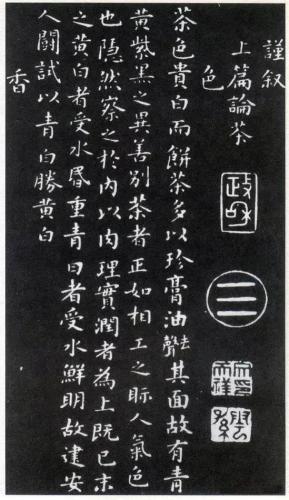 謹叙
上篇論茶
色
政和
茶色貴白而餅茶多以珍膏油去聲其面故有青
黃紫黑之異善別茶者正如相工之眎人氣色
也隱然察之於內以肉理實潤者為上既已末
之黃白者受水昬重青白者受水鮮明故建安
人鬭試以青白勝黃白
香